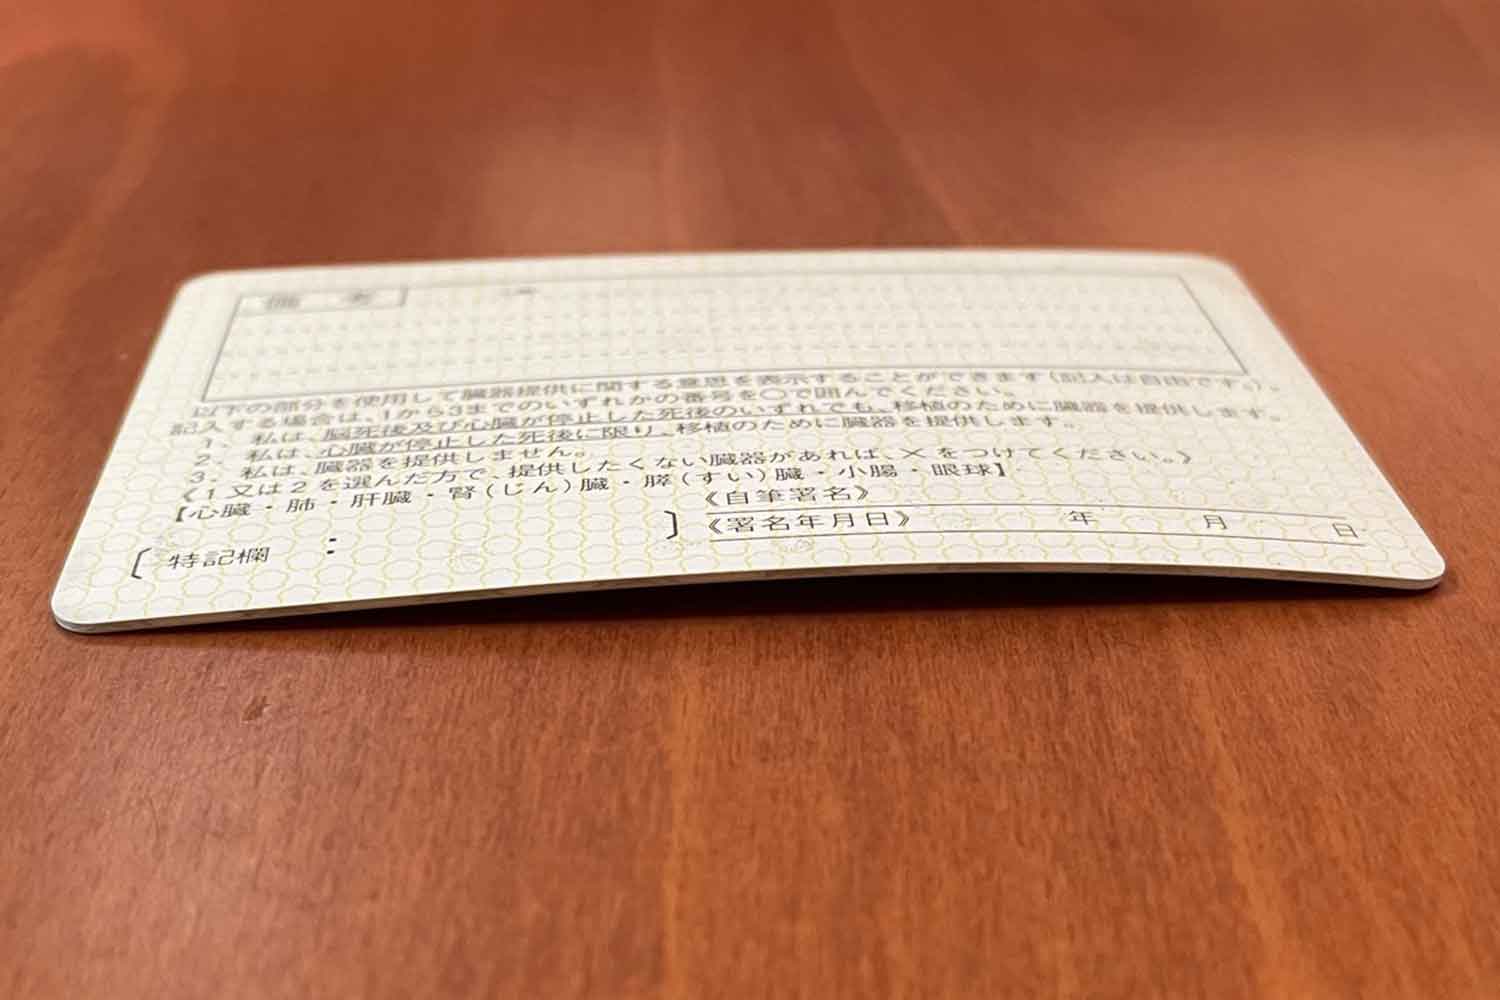 備考
以下の部分を使用して臓器提供に関する意思を表示することができます(記入は自由です。)。
記入する場合は、1から3までのいずれかの番号を〇で囲んでください。
1、私は、脳死後及び心臓が停止した死後のいずれでも、移植のために臓器を提供します。
2、私は、心臓が停止した死後に限り、移植のために臓器を提供します。
3、私は、臓器を提供しません。
《1又は2を選んだ方で、提供したくない臓器があれば、×をつけてください。》
【心臓・肺・肝臓・腎(じん)臓・膵(すい)臓・小腸・眼球】
〔特記欄: 〕
《自筆署名》
《署名年月日》 年 月 日